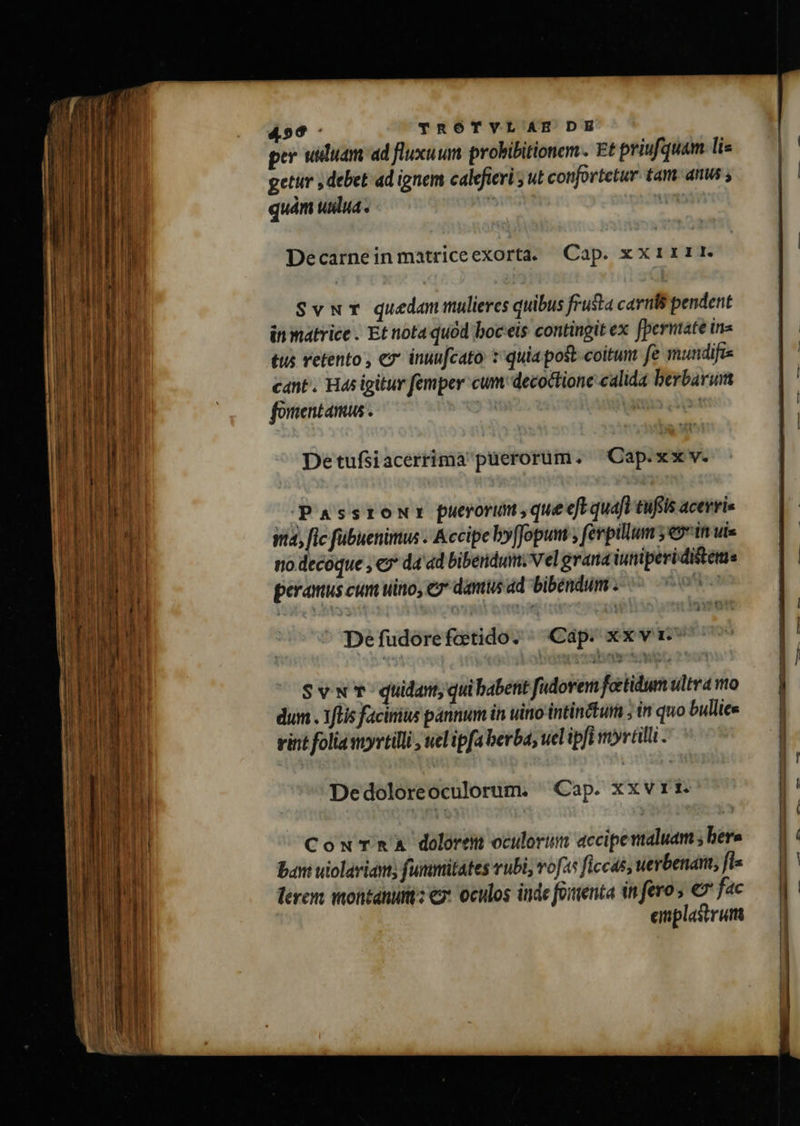 450 TROTVLAE DE
per uuluam ad fluxuum prohibitionem. Et priuſquam lis
getur, debet ad ignem calefieri, ut confortetur tam anus,
quàm uulua.
De carne in matrice exorta. Cap. XXIIII.
SVNT quædam mulieres quibus fruſta carnis pendent
in matrice. Et nota quòd hoc eis contingit ex ſpermate in=
tus retento, & inuuſcato: quia poſt coitum ſe mundifi=
cant. Has igitur ſemper cum decoctione calida herbarum
fomentamus.
De tuſsi acerrima puerorum. Cap. XXV.
PASSIONI puerorum, quæ eſt quaſi tuſsis acerri=
ma, ſic ſubuenimus. Accipe hyſſopum, ſerpillum, & in ui=
no decoque, & da ad bibendum. Vel grana iuniperi diſtem=
peramus cum uino, & damus ad bibendum.
De ſudore fœtido. Cap. XXVI.
SVNT quidam, qui habent ſudorem fœtidum ultra mo
dum. Iſtis facimus pannum in uino intinctum, in quo bullie=
rint folia myrtilli, uel ipſa herba, uel ipſi myrtilli.
De dolore oculorum. Cap. XXVII.
CONTRA dolorem oculorum accipe maluam, her=
bam uiolariam, ſummitates rubi, roſas ſiccas, uerbenam, ſi=
lerem montanum: & oculos inde fomenta in fero, & fac
emplaſtrum